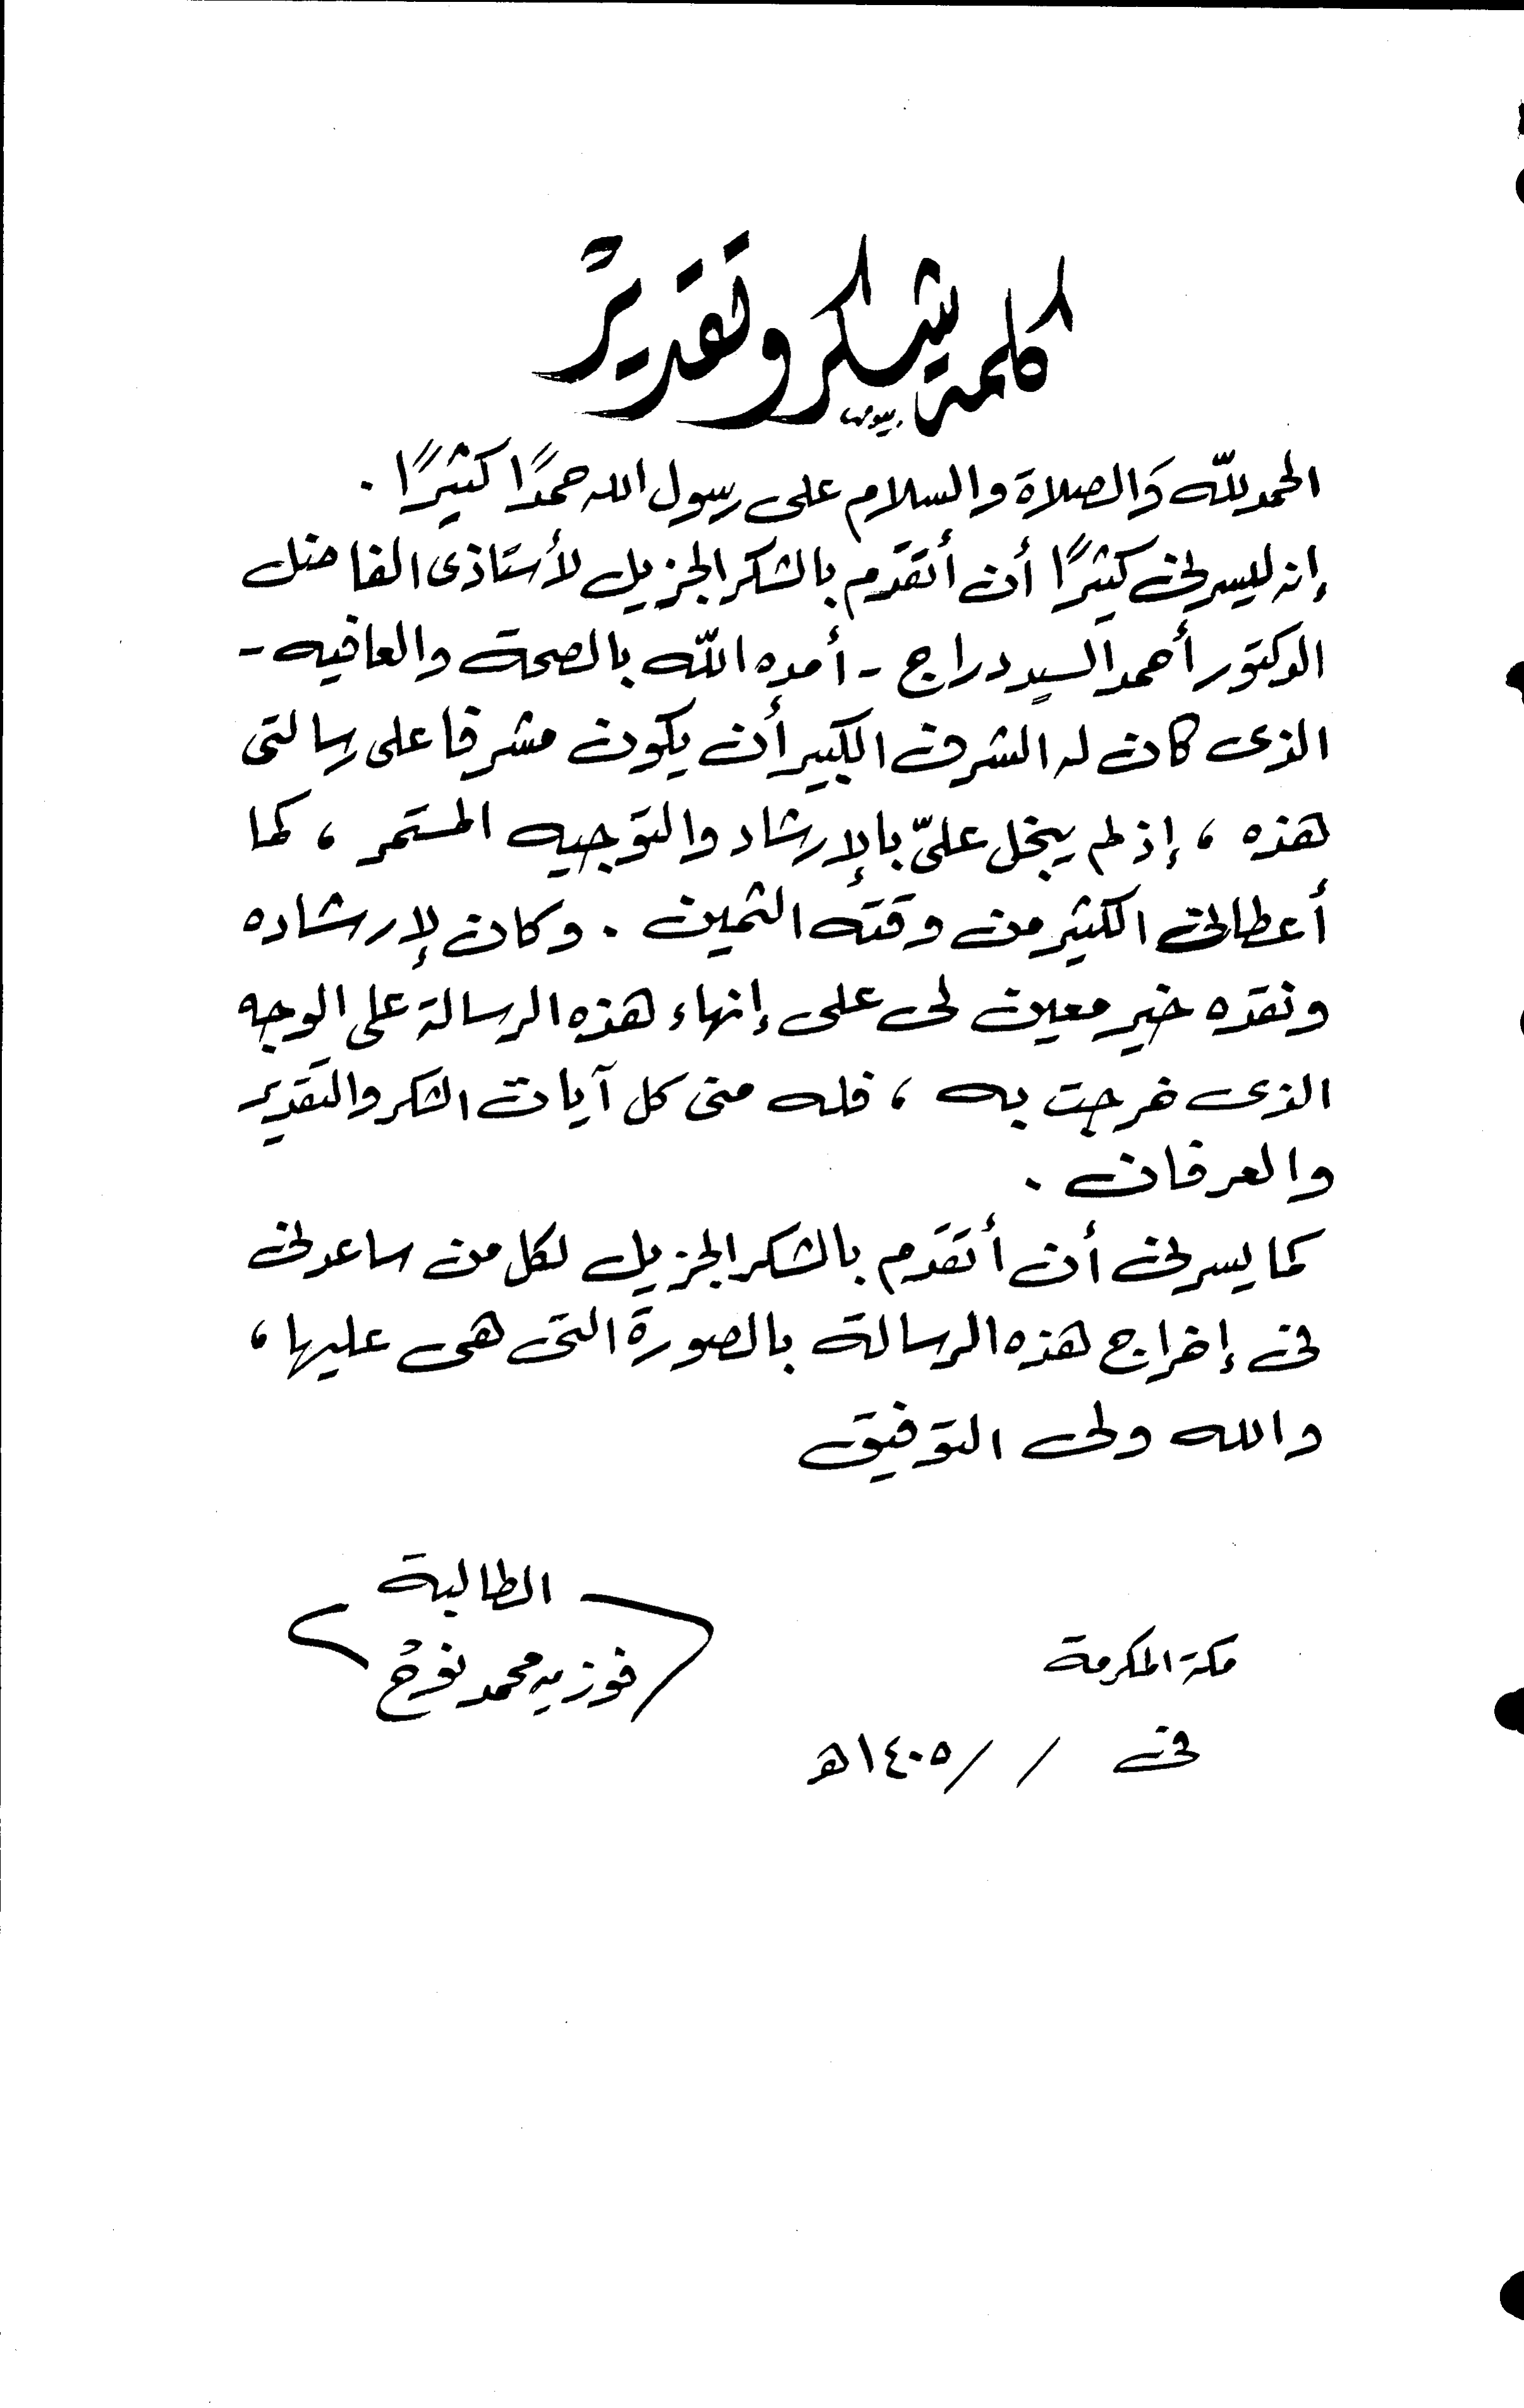 كلمة شكر وتقدير
الحمد لله وَالصلاة والسلام على رسول الله حمدًا كثيرًا .
إنه ليسرنى كثيرًا أن أتقدم بالشكر الجزيل لأستاذى الفاضل
الدكتور أحمد السيد دراج - أمده اللّه بالصحة والعافيه -
الذى كان له الشرف الكبير أن يكون مشرفا على رسالتى
هذه ، إذ لم يبخل علىّ بالإرشاد والتوجيه المستمر ، كما
أعطانى الكثير من وقته الثمين . وكان لإرشاده
ونقده خير معين لى على إنهاء هذه الرسالة على الوجه
الذى خرجت به ، فله منى كل آيات الشكر والتقدير
والعرفان .
كما يسرنى أن أتقدم بالشكر الجزيل لكل من ساعدنى
فى إخراج هذه الرسالة بالصورة التى هى عليها ،
والله ولى التوفيق
الطالبة
فوزيه محمد
مكة المكرمة
فى / / ١٤٠٥هـ